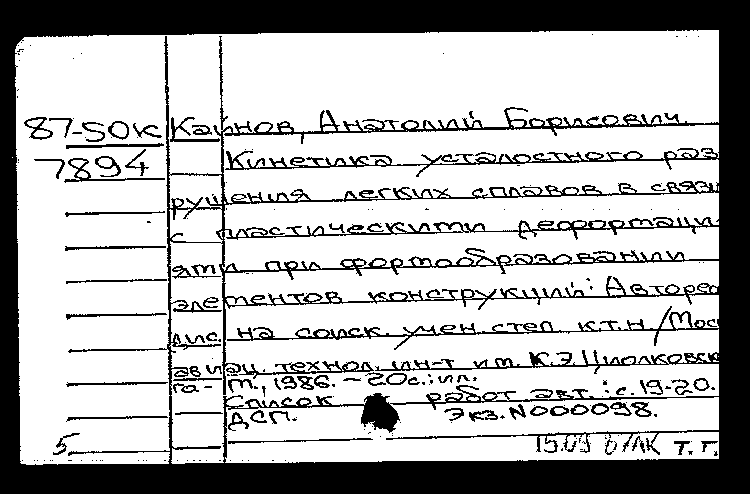 87-50к Кайнов, Анатолий Борисович.
7894 Кинетика усталостного раз
рушения легких сплавов в связи
с пластическими деформаци-
ями при формообразовании
элементов конструкций: Авторео
дис. на соиск. учен. степ. к.т.н. /Мос
авиац. технол. ин-т им. К.Э.Циолковск
га- М., 1986. - 20с.: ил.
Список работ авт.: с. 19-20.
ДСП. Экз. N000098.
5. 15.09 т. г.